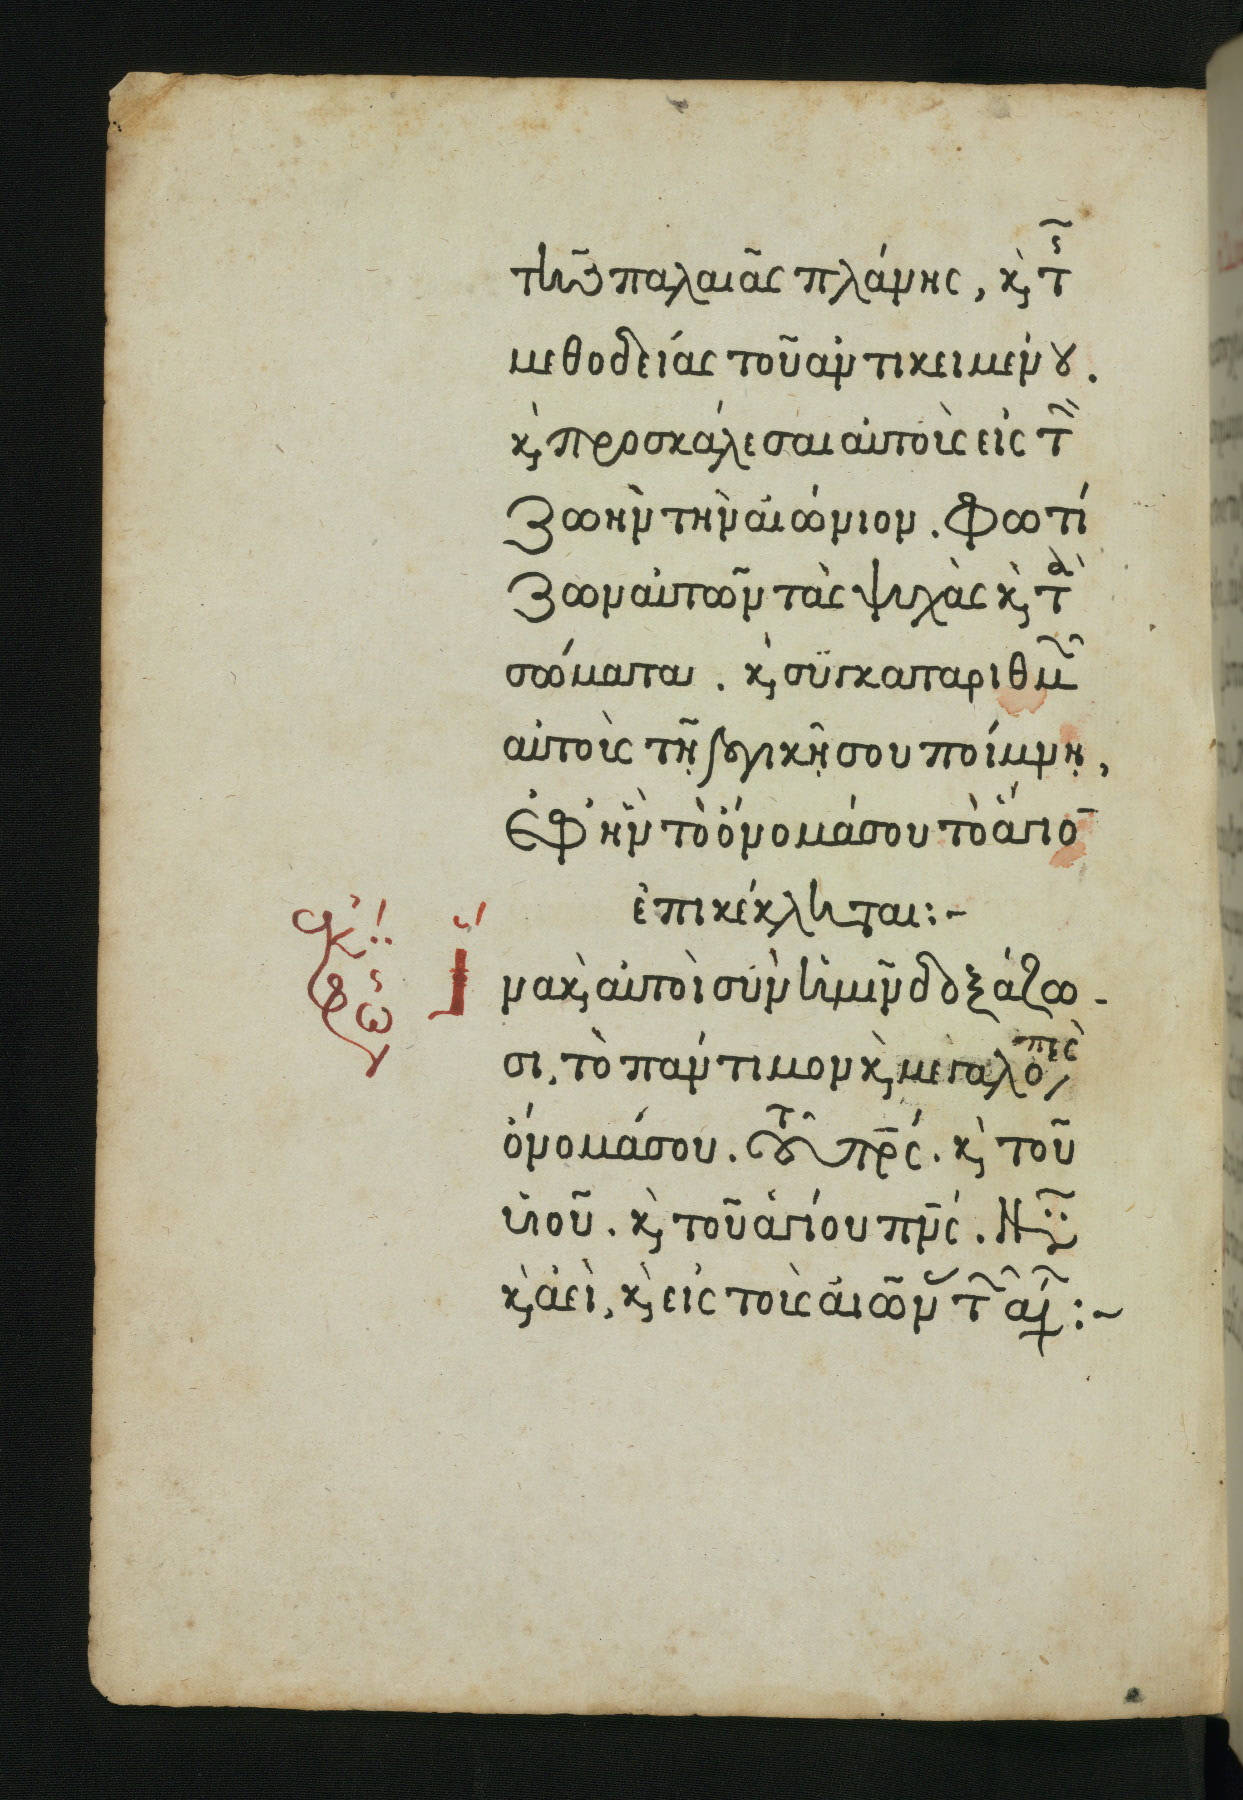 τῆς παλαιᾶς πλάνης, κ̀ τ͂ῆς
μεθοδείας τοῦ ἀντικειμένου.
κ̀ προσκάλεσαι αὐτοὺς εἰς τ̀
ζωὴν τὴν αἰώνιον. Φωτί
ζων αὐτῶν τὰς ψυχὰς κ̀ τὰ
σώματα. κ̀ συγκαταρίθμ
αὐτοὺς τῇ λογικῇ σου ποίμνῃ,
ἐφ' ἣν τὸ ὄνομά σου τὸ ἅγιο
ἐπικέκληται:-
Ἵ
να κ̀ αὐτοὶ σὺν ἡμῖν δοξάζω-
σι, τὸ πάντιμον κ̀ μεγαλοπρεπὲς
ὄνομά σου. τοῦ πρς. κ̀ τοῦ
υἱοῦ. κ̀ τοῦ ἁγίου πνς. Νῦν
κ̀ ἀεὶ, κ̀ εἰς τοὺς αἰῶν τ αἰ:-